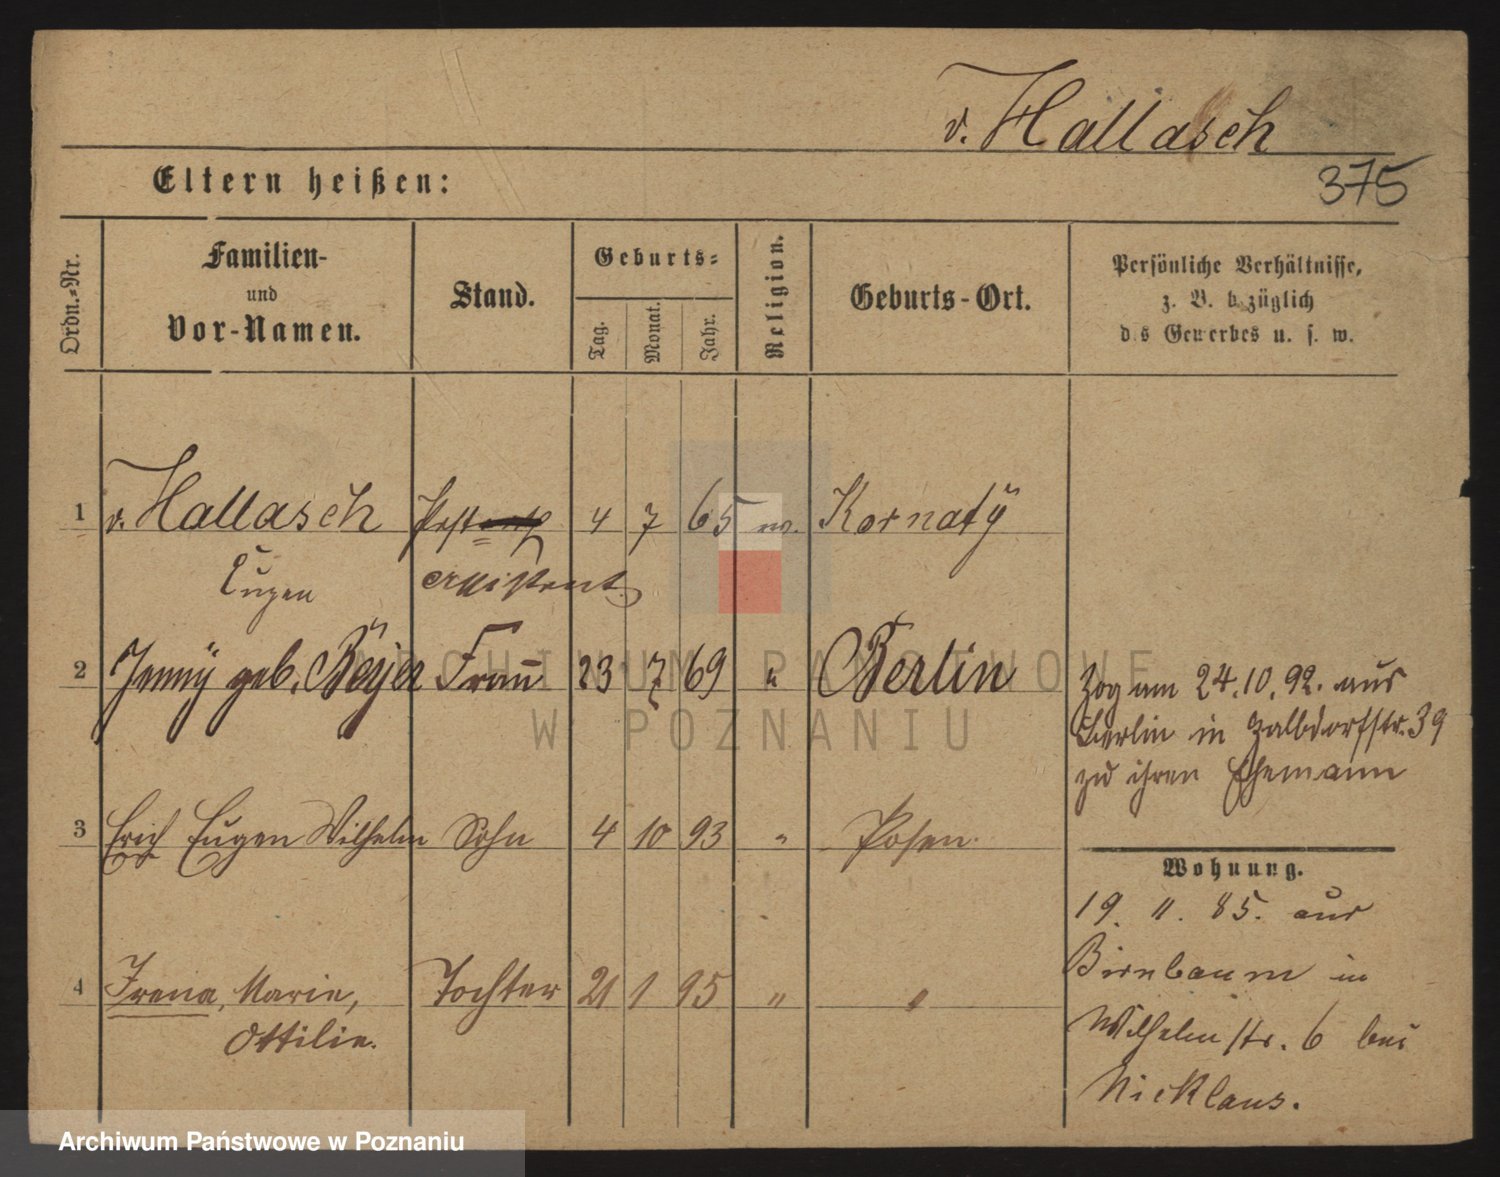 v. Hallasch
375
Eltern heißen:
Ordn.-Nr.
Familien-
und
Vor-Namen.
Stand.
Geburts-
Tag.
Monat.
Jahr.
Religion.
Geburts-Ort.
Persönliche Verhältnisse,
z. B. bezüglich
des Gewerbes u. s. w.
1 v. Hallasch Post 4 7 65 Kornaty
Eugen assistent
2 Jenny geb. Beyer Frau 23 7 69 " Berlin
Zog am 24.10.92. aus
Berlin in str. 39
zu ihren Ehemann
3 Erich Eugen Wilhelm Sohn 4 10 93 " Posen.
Wohnung.
19. 11. 85. aus
Birnbaum in
Wilhelmstr. 6 bei
Nicklaus.
4 Irena, Marie, Tochter 21 1 95 " "
Ottilie.
ARCHIWUM PAŃSTWOWE
W POZNANIU
Archiwum Państwowe w Poznaniu